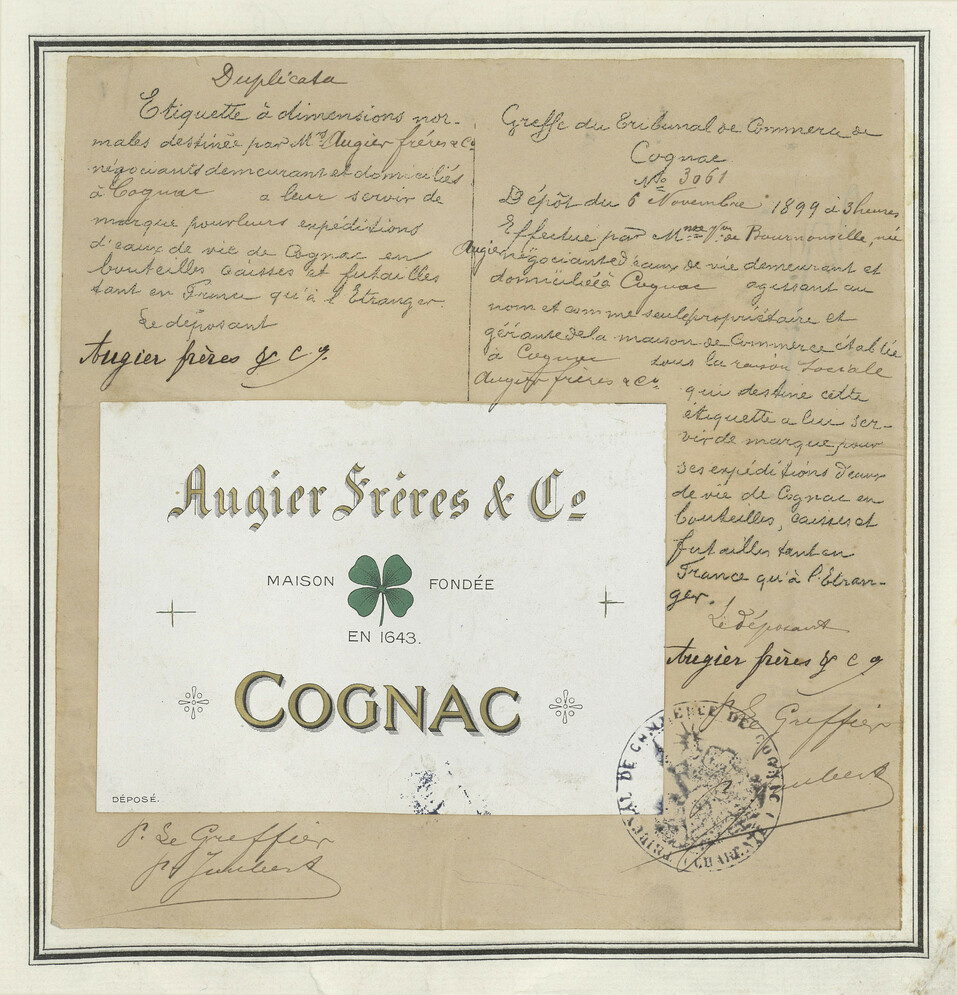 Duplicata
Etiquette à dimensions nor-
males destinée par Mrs Augier frères & Co
négociants demeurant et domiciliés
à Cognac a leur servir de
marque pour leurs expéditions
d'eaux de vie de Cognac en
bouteilles caisses et futailles
tant en France qu'à l'Etranger.
Le déposant
Augier frères & Co.
Greffe du Tribunal de Commerce de
Cognac
No 3061
Dépôt du 6 Novembre 1899 à 3 heures
Effectué par Mme Vve de Bournonville, née
Augier négociante d'eaux de vie demeurant et
domiciliée à Cognac agissant au
nom et comme seule propriétaire et
gérante de la maison de Commerce établie
à Cognac sous la raison sociale
Augier frères & Co
qui destine cette
étiquette a lui ser-
vir de marque pour
ses expéditions d'eaux
de vie de Cognac en
bouteilles, caisses et
futailles tant en
France qu'à l'Etran-
ger.
Le déposant
Augier frères & Co
Le Greffier
Augier Frères & Co
MAISON FONDÉE
EN 1643.
COGNAC
DÉPOSÉ.
TRIBUNAL DE COMMERCE DE COGNAC (CHARENTE)
P. Le Greffier